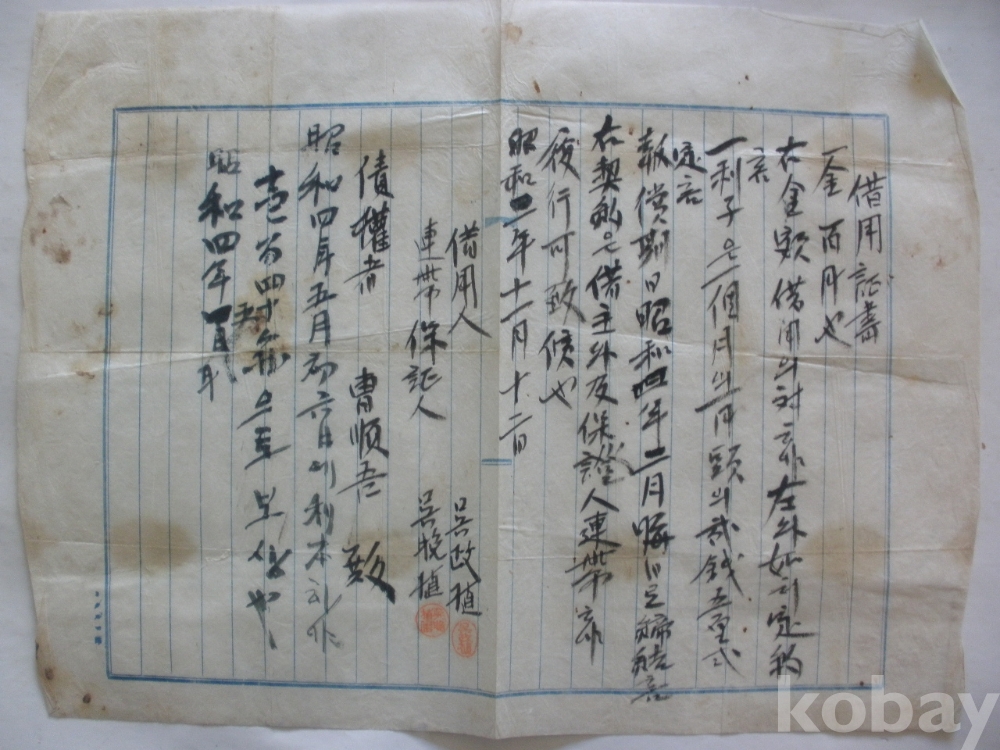 借用証書
一金 百円也
右金額借用의対하야 左外如히定約
홈
一利子은一個月의一円頭의貳戔五里式
定홈
報償期日昭和四年二月晦日로締結홈
右契約은借主外及保證人連帯하야
履行可致候也
昭和三年十一月十二日
借用人 吳政植
連帯保証人 吳晩植
債權者 曺順吾 殿
昭和四年五月初六日에利本合하야
壹百四十五円으로
昭和四年
kobay